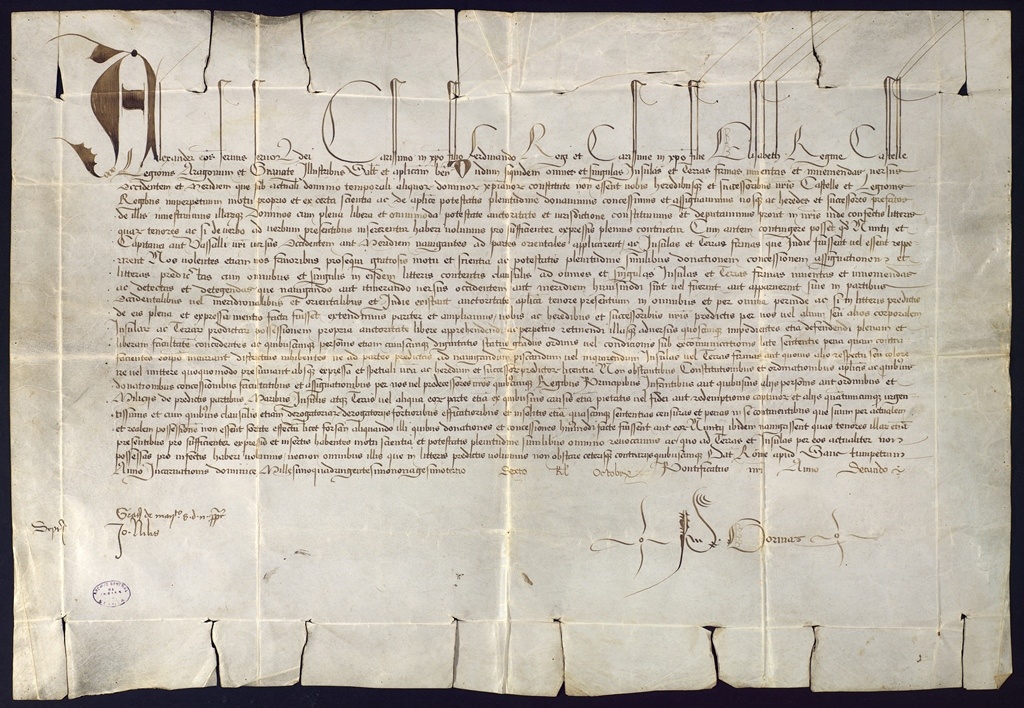 Alexander eps servus servorum dei Carissimo in xpo filio Ferdinando Regi et Carissime in xpo filie Elisabeth Regine Castelle
Legionis Aragonum et Granate Illustribus Salt et aplicam ben Dudum siquidem omnes et singulas Insulas et terras firmas inventas et inveniendas versus
Occidentem et Meridiem que sub actuali dominio temporali aliquorum dominorum xpianorum constitute non essent vobis heredibusque et successoribus vris Castelle et Legionis
Regibus imperpetuum motu proprio et ex certa scientia ac de aplice potestatis plenitudine donavimus concessimus et assignavimus vosque ac heredes et successores prefatos
de illis investivimus illarumque dominos cum plena libera et omnimoda potestate auctoritate et iurisdictione constituimus et deputavimus prout in nris inde confectis litteris
quarum tenores ac si de verbo ad verbum presentibus insererentur haberi volumus pro sufficienter expressis plenius continetur Cum autem contingere posset quod Nuntii et
Capitanei aut Vassalli vri versus Occidentem aut Meridiem navigantes ad partes orientales applicarent ac Insulas et terras firmas que Indie fuissent vel essent repe
rirent Nos volentes etiam vos favoribus prosequi gratiosis motu et scientia ac potestatis plenitudine similibus donationem concessionem assignationem et
litteras predictas cum omnibus et singulis in eisdem litteris contentis clausulis ad omnes et singulas Insulas et terras firmas inventas et inveniendas
ac detectas et detegendas que navigando aut itinerando versus occidentem aut meridiem huiusmodi sint vel fuerint aut apparuerint sive in partibus
Occidentalibus vel meridionalibus et orientalibus et Indie existant auctoritate aplica tenore presentium in omnibus et per omnia perinde ac si in litteris predictis
de eis plena et expressa mentio facta fuisset extendimus pariter et ampliamus vobis ac heredibus et successoribus vris predictis per vos vel alium seu alios corporalem
Insularum ac terrarum predictarum possessionem propria auctoritate libere apprehendendi ac perpetuo retinendi illasque adversus quoscunque impedientes etiam defendendi plenam et
liberam facultatem concedentes ac quibuscunque personis etiam cuiuscunque dignitatis status gradus ordinis vel conditionis sub excommunicationis late sententie pena quam contra
facientes eo ipso incurrant districtius inhibentes ne ad partes predictas ad navigandum piscandum vel inquirendum Insulas vel terras firmas aut quovis alio respectu seu colore
ire vel mittere quoquomodo presumant absque expressa et speciali vra ac heredum et successorum predictorum licentia Non obstantibus Constitutionibus et ordinationibus aplicis ac quibusvis
donationibus concessionibus facultatibus et assignationibus per nos vel predecessores nros quibuscunque Regibus Principibus Infantibus aut quibusvis aliis personis aut ordinibus et
Miliciis de predictis partibus Maribus Insulis atque terris vel aliqua eorum parte etiam ex quibusvis causis etiam pietatis vel fidei aut redemptionis captivorum et aliis quantumcunque urgen
tissimis et cum quibusvis clausulis etiam derogatoriarum derogatoriis fortioribus efficatioribus et insolitis etiam quascunque sententias censuras et penas in se continentibus que suum per actualem
et realem possessionem non essent sortite effectum licet forsan aliquando illi quibus donationes et concessiones huiusmodi facte fuissent aut eorum Nuntii ibidem navigassent quas tenores illarum etiam
presentibus pro sufficienter expressis et insertis habentes motu scientia et potestatis plenitudine similibus omnino revocamus ac quo ad terras et Insulas per eos actualiter non
possessas pro infectis haberi volumus necnon omnibus illis que in litteris predictis voluimus non obstare ceterisque contrariis quibuscunque Dat Rome apud Sanctumpetrum
Anno Incarnationis dominice Millesimoquadringentesimononagesimotertio Sexto kl Octobr Pontificatus nri Anno Secundo
Jo. Nilis